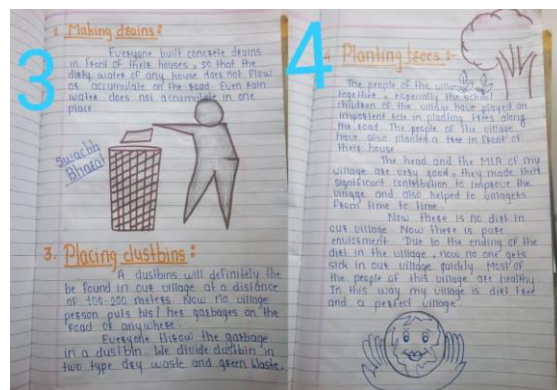 3
2. Making drains:
Everyone built concrete drains
in front of their houses, so that the
dirty water of any house does not flow
or accumulate on the road. Even rain
water does not accumulate in one
place.
Swachh
Bharat
3. Placing dustbins:
A dustbins will definitely the
be found in our village at a distance
of 100-200 meters. Now no village
person puts his/her garbages on the
road of anywhere.
Everyone throw the garbage
in a dustbin. We divide dustbin in
two type dry waste and green waste.
4
4 Planting trees:-
The people of the village
together, especially the school
children of the village have played an
important role in planting trees along
the road. The people of the village
have also planted a tree in front of
their house.
The head and the MLA of my
village are very good, they made their
significant contribution to improve the
village and also helped to villagers
from time to time.
Now there is no dirt in
our village. Now there is pure
enviorment. Due to the ending of the
dirt in the village, now no one gets
sick in our village quickly. Most of
the people of this village are healthy.
In this way my village is dirt free
and a perfect village